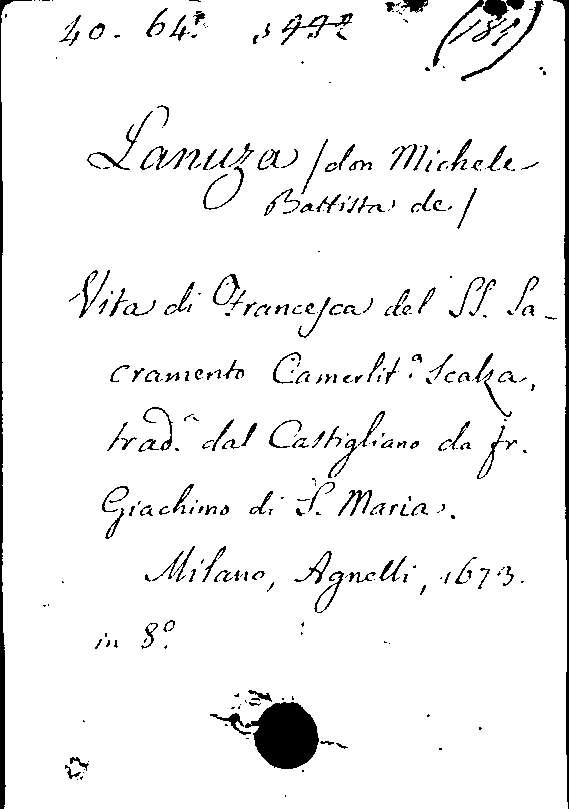 40. 64.
Lanuza / don Michele
Battista de /
Vita di Francesca del SS. Sa-
cramento Camerlit.ª Scalza,
trad.ª dal Castigliano da fr.
Giachimo di S. Maria.
Milano, Agnelli, 1673.
in 8.º